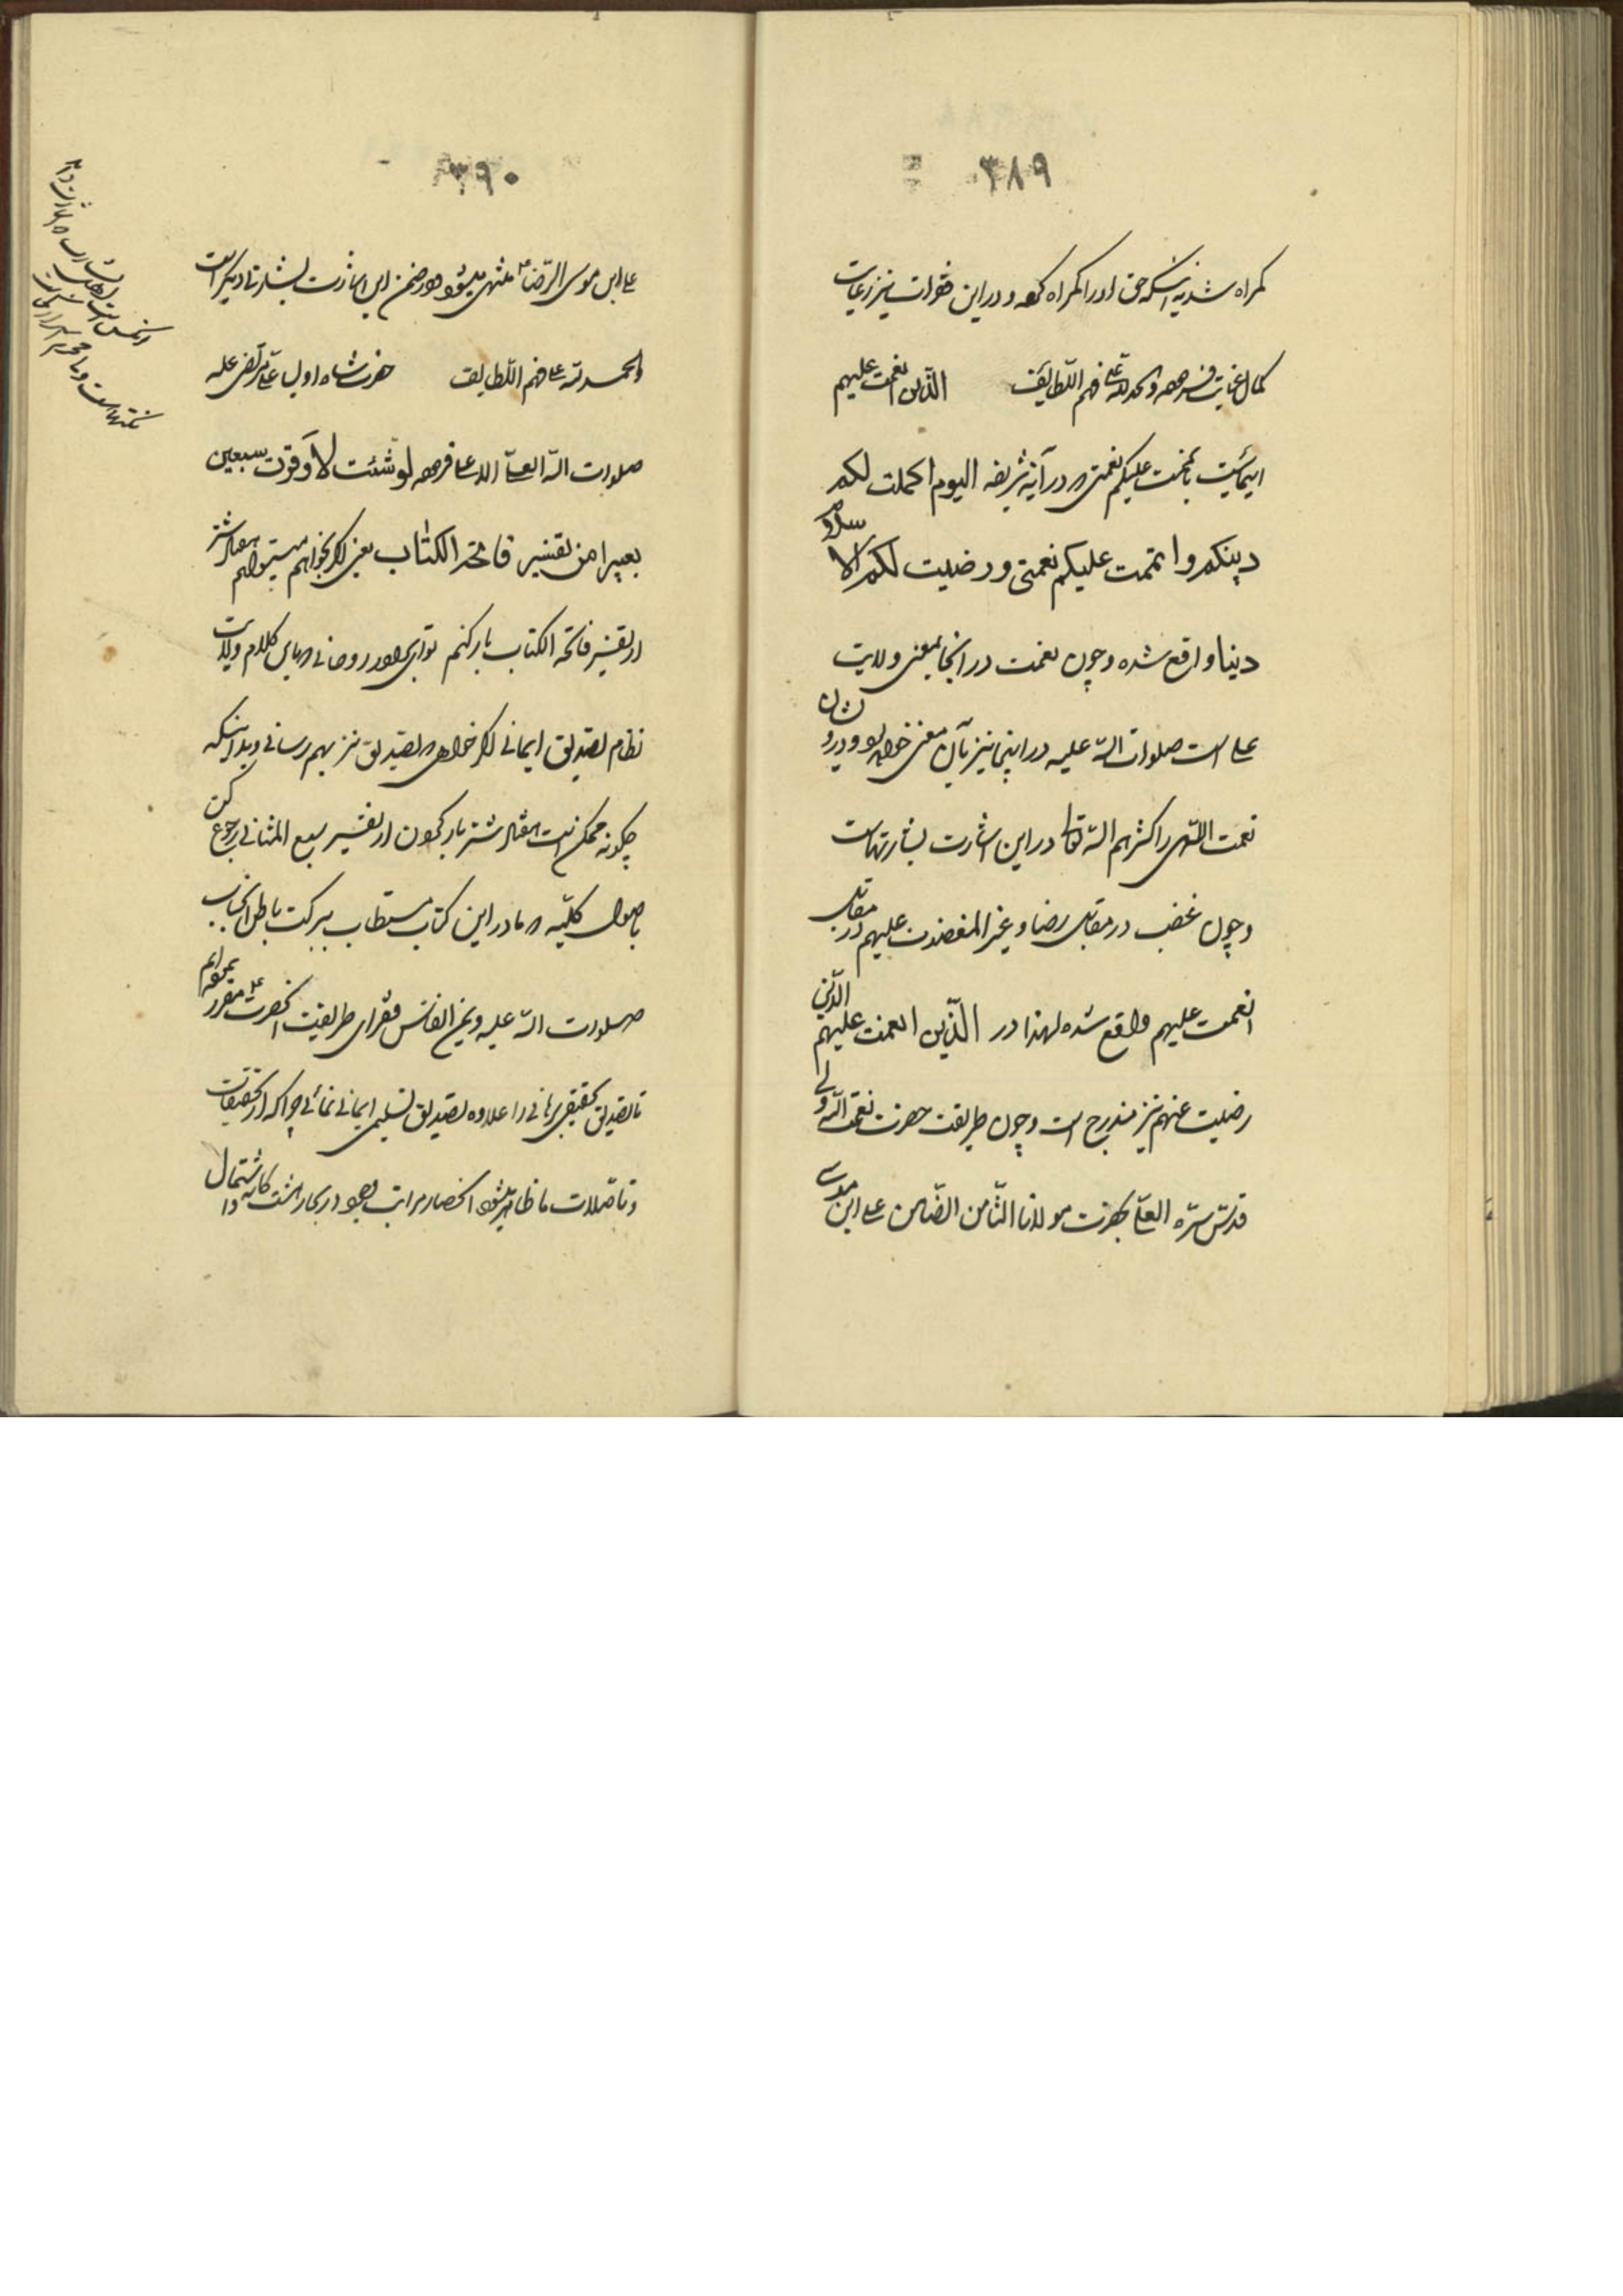 ۳۸۹
گمراه شد نه اینکه حق او را گمراه کرده و در این فقرات نیز رعایت
کمال عنایت فرموده والحمد لله علی فهم اللطایف الذین انعمت علیهم
ایمائیست باتممت علیکم نعمتی که در آیه شریفه الیوم اکملت لکم
دینکم واتممت علیکم نعمتی ورضیت لکم الاسلام
دینا واقع شده و چون نعمت در آنجا بمعنی ولایت
علی است صلوات الله علیه در اینجا نیز بآن معنی خواهد بود و درویشان
نعمت اللهی را کثرهم الله تعالی در این اشارت بشارتهاست
و چون غضب در مقابل رضا و غیر المغضوب علیهم در مقابل
انعمت علیهم واقع شده لهذا در الذین انعمت علیهم الذین
رضیت عنهم نیز مندرج است و چون طریقت حضرت نعمت الله ولی
قدس سره العلی بحضرت مولانا الثامن الضامن علی ابن موسی
۳۹۰
علی ابن موسی الرضا ع منتهی میشود در ضمن این بشارت بشارتها دیگر است
والحمد لله علی فهم اللطایف حضرت شاه اولیا علی مرتضی علیه
صلوات الله العلی الاعلی فرموده لو شئت لاوقرت سبعین
بعیرا من تفسیر فاتحة الکتاب یعنی اگر بخواهم میتوانم هفتاد شتر
از تفسیر فاتحة الکتاب بار کنم تو ای برادر روحانی که باین کلام ولایت
نظام تصدیق ایمانی اگر خواهی که تصدیق نیز بهم رسانی و بدانی که
چگونه ممکن است هفتاد شتر بار کردن از تفسیر سبع المثانی رجوع کن
باصول کلیه که ما در این کتاب مستطاب ببرکت باطن آنجناب
صلوات الله علیه و بیمن انفاس فقرای طریقت آنحضرت ع مقرر نموده‌ایم
تا تصدیق تحقیقی برهانی را علاوه تصدیق تسلیمی ایمانی نمائی چرا که از تحقیقات
و تأصیلات ما ظاهر میشود انحصار مراتب وجود در بحار هشت‌گانه و اشتمال